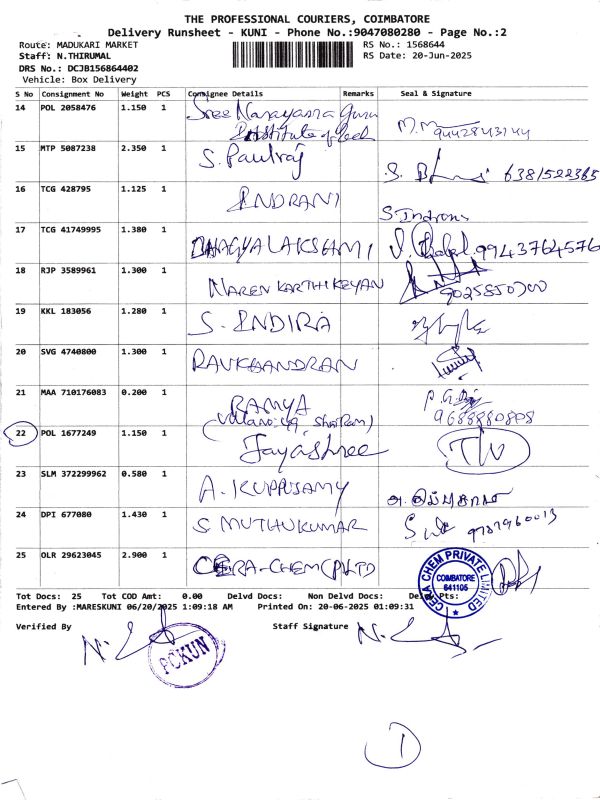 THE PROFESSIONAL COURIERS, COIMBATORE
Delivery Runsheet - KUNI - Phone No.:9047080280 - Page No.:2
Route: MADUKARI MARKET
RS No.: 1568644
Staff: N.THIRUMAL
RS Date: 20-Jun-2025
DRS No.: DCJB156864402
Vehicle: Box Delivery
S No Consignment No Weight PCS Consignee Details Remarks Seal & Signature
14 POL 2058476 1.150 1 Sree Narayana Guru
Institute of Tech 9442843144
15 MTP 5087238 2.350 1 S. Paulraj
6381522365
16 TCG 428795 1.125 1 INDRANI
S Indrani
17 TCG 41749995 1.380 1 BHAGYALAKSHMI 9943764576
18 RJP 3589961 1.300 1 NAREN KARTHIKEYAN
9025850700
19 KKL 183056 1.280 1 S. INDIRA
20 SVG 4740800 1.300 1 RAVICHANDRAN
21 MAA 710176083 0.200 1 RAMYA
9688880808
22 POL 1677249 1.150 1 Jayashree
23 SLM 372299962 0.580 1 A. KUPPUSAMY
24 DPI 677080 1.430 1 S MUTHUKUMAR
9787960013
25 OLR 29623045 2.900 1 CERA-CHEM (P) LTD
CERA CHEM PRIVATE LIMITED
COIMBATORE
641105
Tot Docs: 25 Tot COD Amt: 0.00 Delvd Docs: Non Delvd Docs: Delvd Pts:
Entered By :MARESKUNI 06/20/2025 1:09:18 AM Printed On: 20-06-2025 01:09:31
Verified By Staff Signature
PCKUN
1